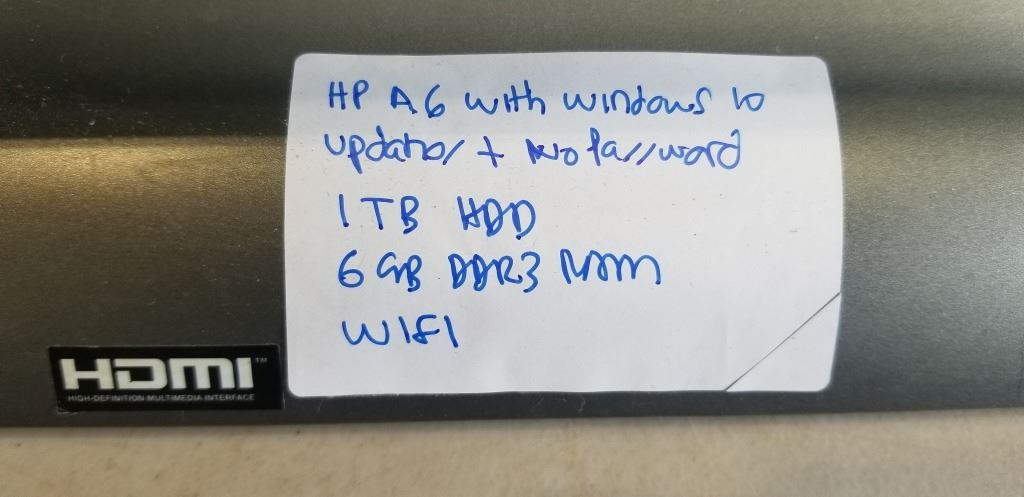 HP A6 with windows 10
updates + No Password
1 TB HDD
6 GB DDR3 RAM
WIFI
HDMI™
HIGH-DEFINITION MULTIMEDIA INTERFACE